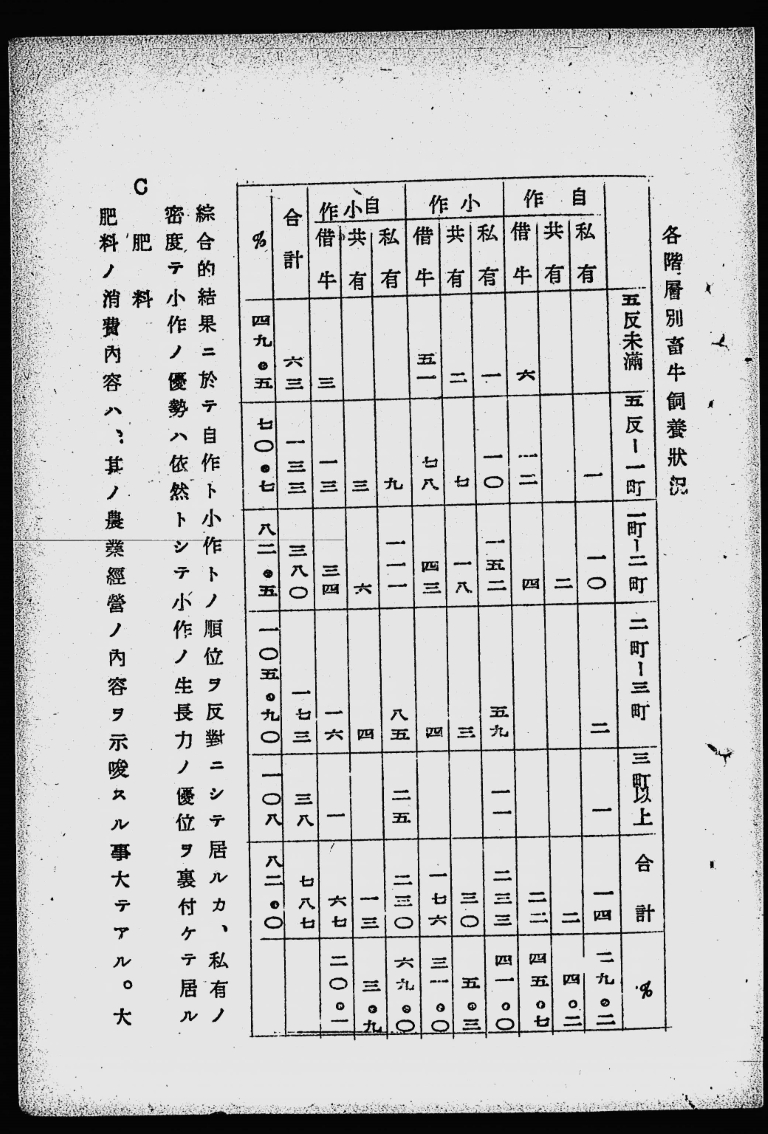 各階層別畜牛飼養狀況
五反未滿 五反ー一町 一町ー二町 二町ー三町 三町以上 合計 %
自作
私有 一 一〇 二 一 一四 二九・二
共有 二 二 四・二
借牛 六 一二 四 二二 四五・七
小作
私有 一 一〇 一五二 五九 一一 二三三 四一・〇
共有 二 七 一八 三 三〇 五・三
借牛 五一 七八 四三 四 一七六 三一・〇
自小作
私有 九 一一一 八五 二五 二三〇 六九・〇
共有 三 六 四 一三 三・九
借牛 三 一三 三四 一六 一 六七 二〇・一
合計 六三 一三三 三八〇 一七三 三八 七八七
% 四九・五 七〇・七 八二・五 一〇五・九〇 一〇八 八二・〇
綜合的結果ニ於テ自作ト小作トノ順位ヲ反對ニシテ居ルカ、私有ノ
密度テ小作ノ優勢ハ依然トシテ小作ノ生長力ノ優位ヲ裏付ケテ居ル
C 肥料
肥料ノ消費內容ハ、其ノ農業經營ノ內容ヲ示唆スル事大テアル。大